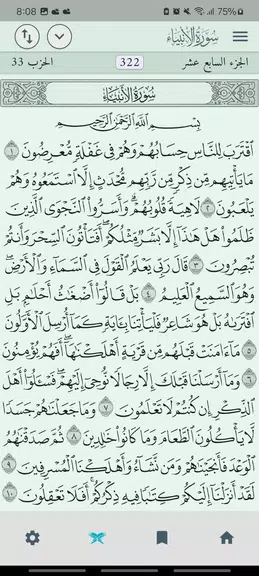 8:08
75%
سُورَةُ الأَنْبِيَاء
الجزء السابع عشر
322
الحزب 33
سُورَةُ الأَنْبِيَاء
بِسْمِ اللَّهِ الرَّحْمَٰنِ الرَّحِيمِ
ٱقۡتَرَبَ لِلنَّاسِ حِسَابُهُمۡ وَهُمۡ فِي غَفۡلَةٖ مُّعۡرِضُونَ ١
مَا يَأۡتِيهِم مِّن ذِكۡرٖ مِّن رَّبِّهِم مُّحۡدَثٍ إِلَّا ٱسۡتَمَعُوهُ وَهُمۡ
يَلۡعَبُونَ ٢ لَاهِيَةٗ قُلُوبُهُمۡۗ وَأَسَرُّواْ ٱلنَّجۡوَى ٱلَّذِينَ
ظَلَمُواْ هَلۡ هَٰذَآ إِلَّا بَشَرٞ مِّثۡلُكُمۡۖ أَفَتَأۡتُونَ ٱلسِّحۡرَ وَأَنتُمۡ
تُبۡصِرُونَ ٣ قَالَ رَبِّي يَعۡلَمُ ٱلۡقَوۡلَ فِي ٱلسَّمَآءِ وَٱلۡأَرۡضِۖ
وَهُوَ ٱلسَّمِيعُ ٱلۡعَلِيمُ ٤ بَلۡ قَالُوٓاْ أَضۡغَٰثُ أَحۡلَٰمِۭ بَلِ
ٱفۡتَرَىٰهُ بَلۡ هُوَ شَاعِرٞ فَلۡيَأۡتِنَا بِـَٔايَةٖ كَمَآ أُرۡسِلَ ٱلۡأَوَّلُونَ
٥ مَآ ءَامَنَتۡ قَبۡلَهُم مِّن قَرۡيَةٍ أَهۡلَكۡنَٰهَآۖ أَفَهُمۡ يُؤۡمِنُونَ
٦ وَمَآ أَرۡسَلۡنَا قَبۡلَكَ إِلَّا رِجَالٗا نُّوحِيٓ إِلَيۡهِمۡۖ فَسۡـَٔلُوٓاْ أَهۡلَ
ٱلذِّكۡرِ إِن كُنتُمۡ لَا تَعۡلَمُونَ ٧ وَمَا جَعَلۡنَٰهُمۡ جَسَدٗا
لَّا يَأۡكُلُونَ ٱلطَّعَامَ وَمَا كَانُواْ خَٰلِدِينَ ٨ ثُمَّ صَدَقۡنَٰهُمُ
ٱلۡوَعۡدَ فَأَنجَيۡنَٰهُمۡ وَمَن نَّشَآءُ وَأَهۡلَكۡنَا ٱلۡمُسۡرِفِينَ
٩ لَقَدۡ أَنزَلۡنَآ إِلَيۡكُمۡ كِتَٰبٗا فِيهِ ذِكۡرُكُمۡۚ أَفَلَا تَعۡقِلُونَ ١٠